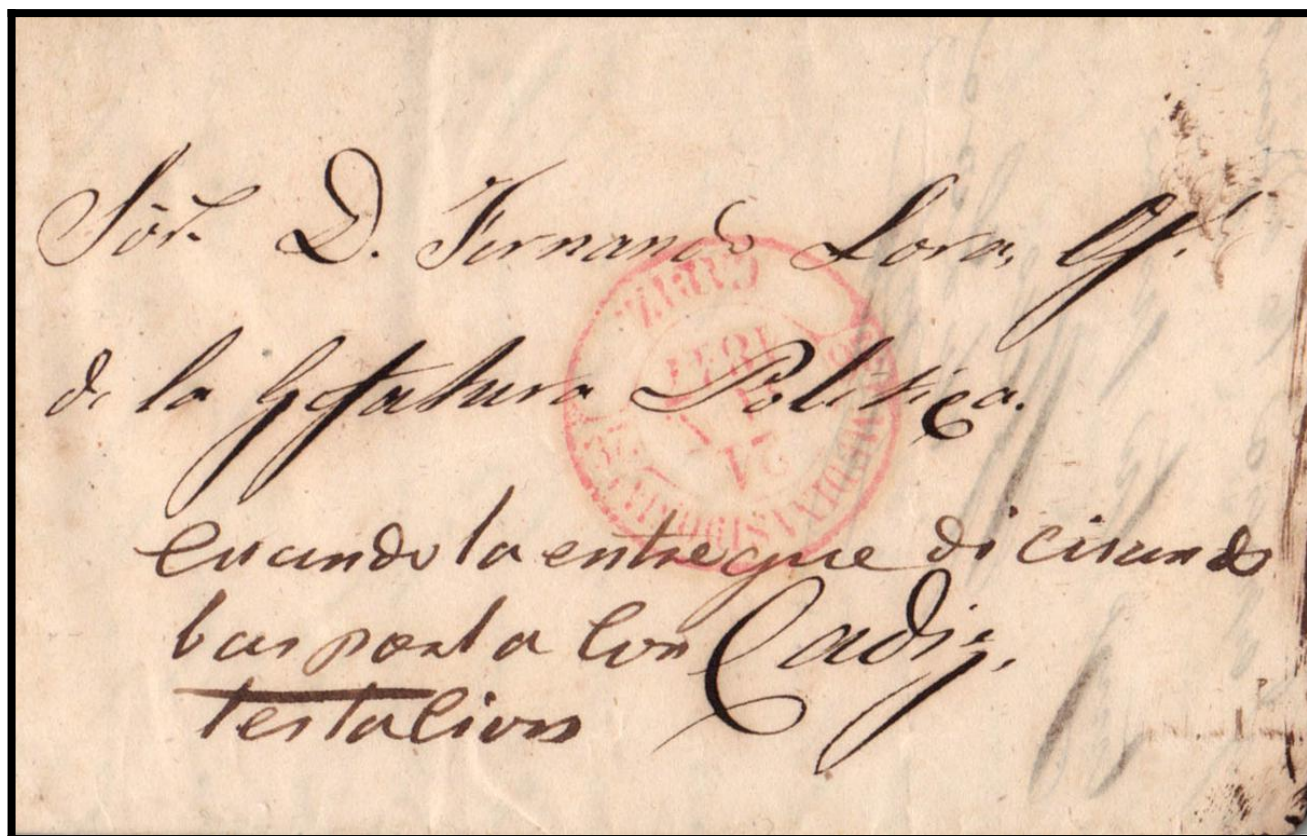 Sör. D. Fernando Lora, Of.l
de la Gefatura Politica.
cuando la entregue di cuando
bas por la con
testacion
Cadiz.
CADIZ
24